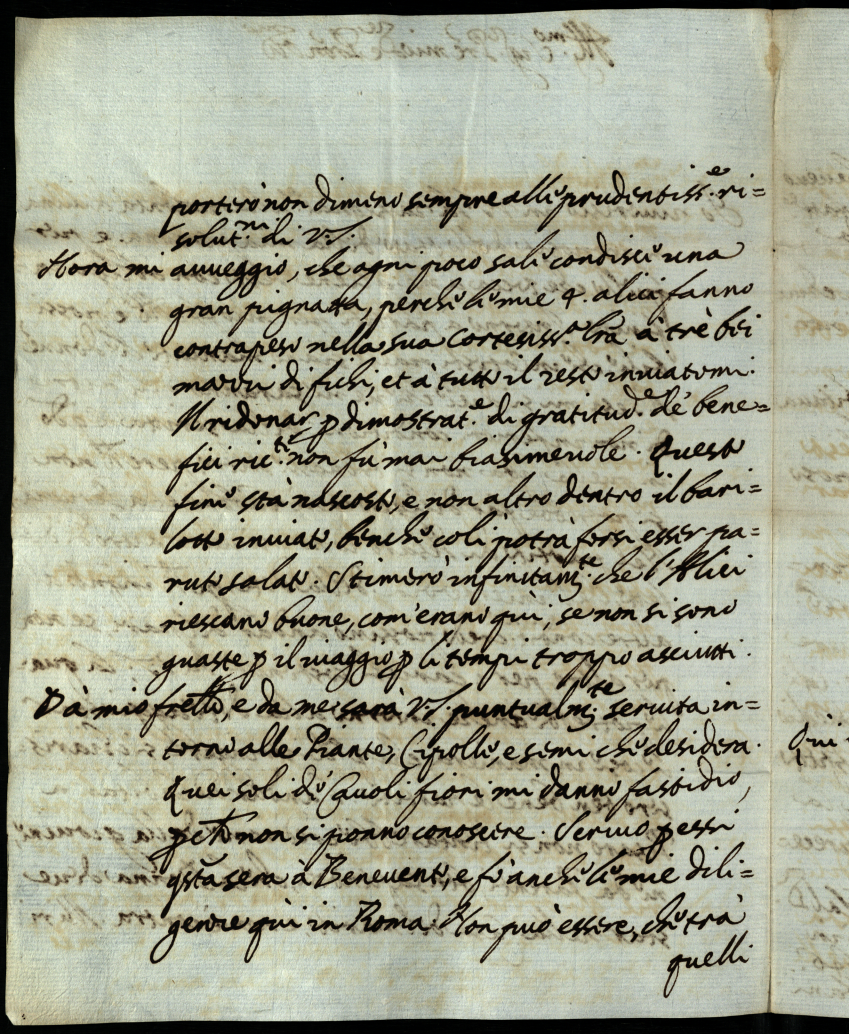 porterò non dimeno sempre alle prudentiss.e ri=
solut.ni di V.S.
Hora mi auueggio, che ogni poco sale condisce una
gran pignatta, perche le mie 4. alici fanno
contrapeso nella sua Cortesiss.a lrã à trè bei
di fichi, et à tutto il resto inuiatomi.
Il ridonar p dimostrat.e di gratitud.e de' bene=
fici ric.ti non fù mai biasimeuole. Questo
fine stà nascosto, e non altro dentro il bari=
lotto inuiato, benche colì potrà forsi esser pa=
ruto salato. Stimerò infinitam.te che l'Alici
riescano buone, com'erano quì, se non si sono
guaste p il uiaggio p li tempi troppo asciutti.
Da mio frello, e da me sarà V.S. puntualm.te seruita in=
torno alle Piante, Cipolle, e semi che desidera.
Quei soli de' Cauoli fiori mi danno fastidio,
non si ponno conoscere. Scriuo p essi
qsta sera à Beneuento, e fò anche le mie dili=
genze quì in Roma. Non può essere, che trà
quelli
Qui